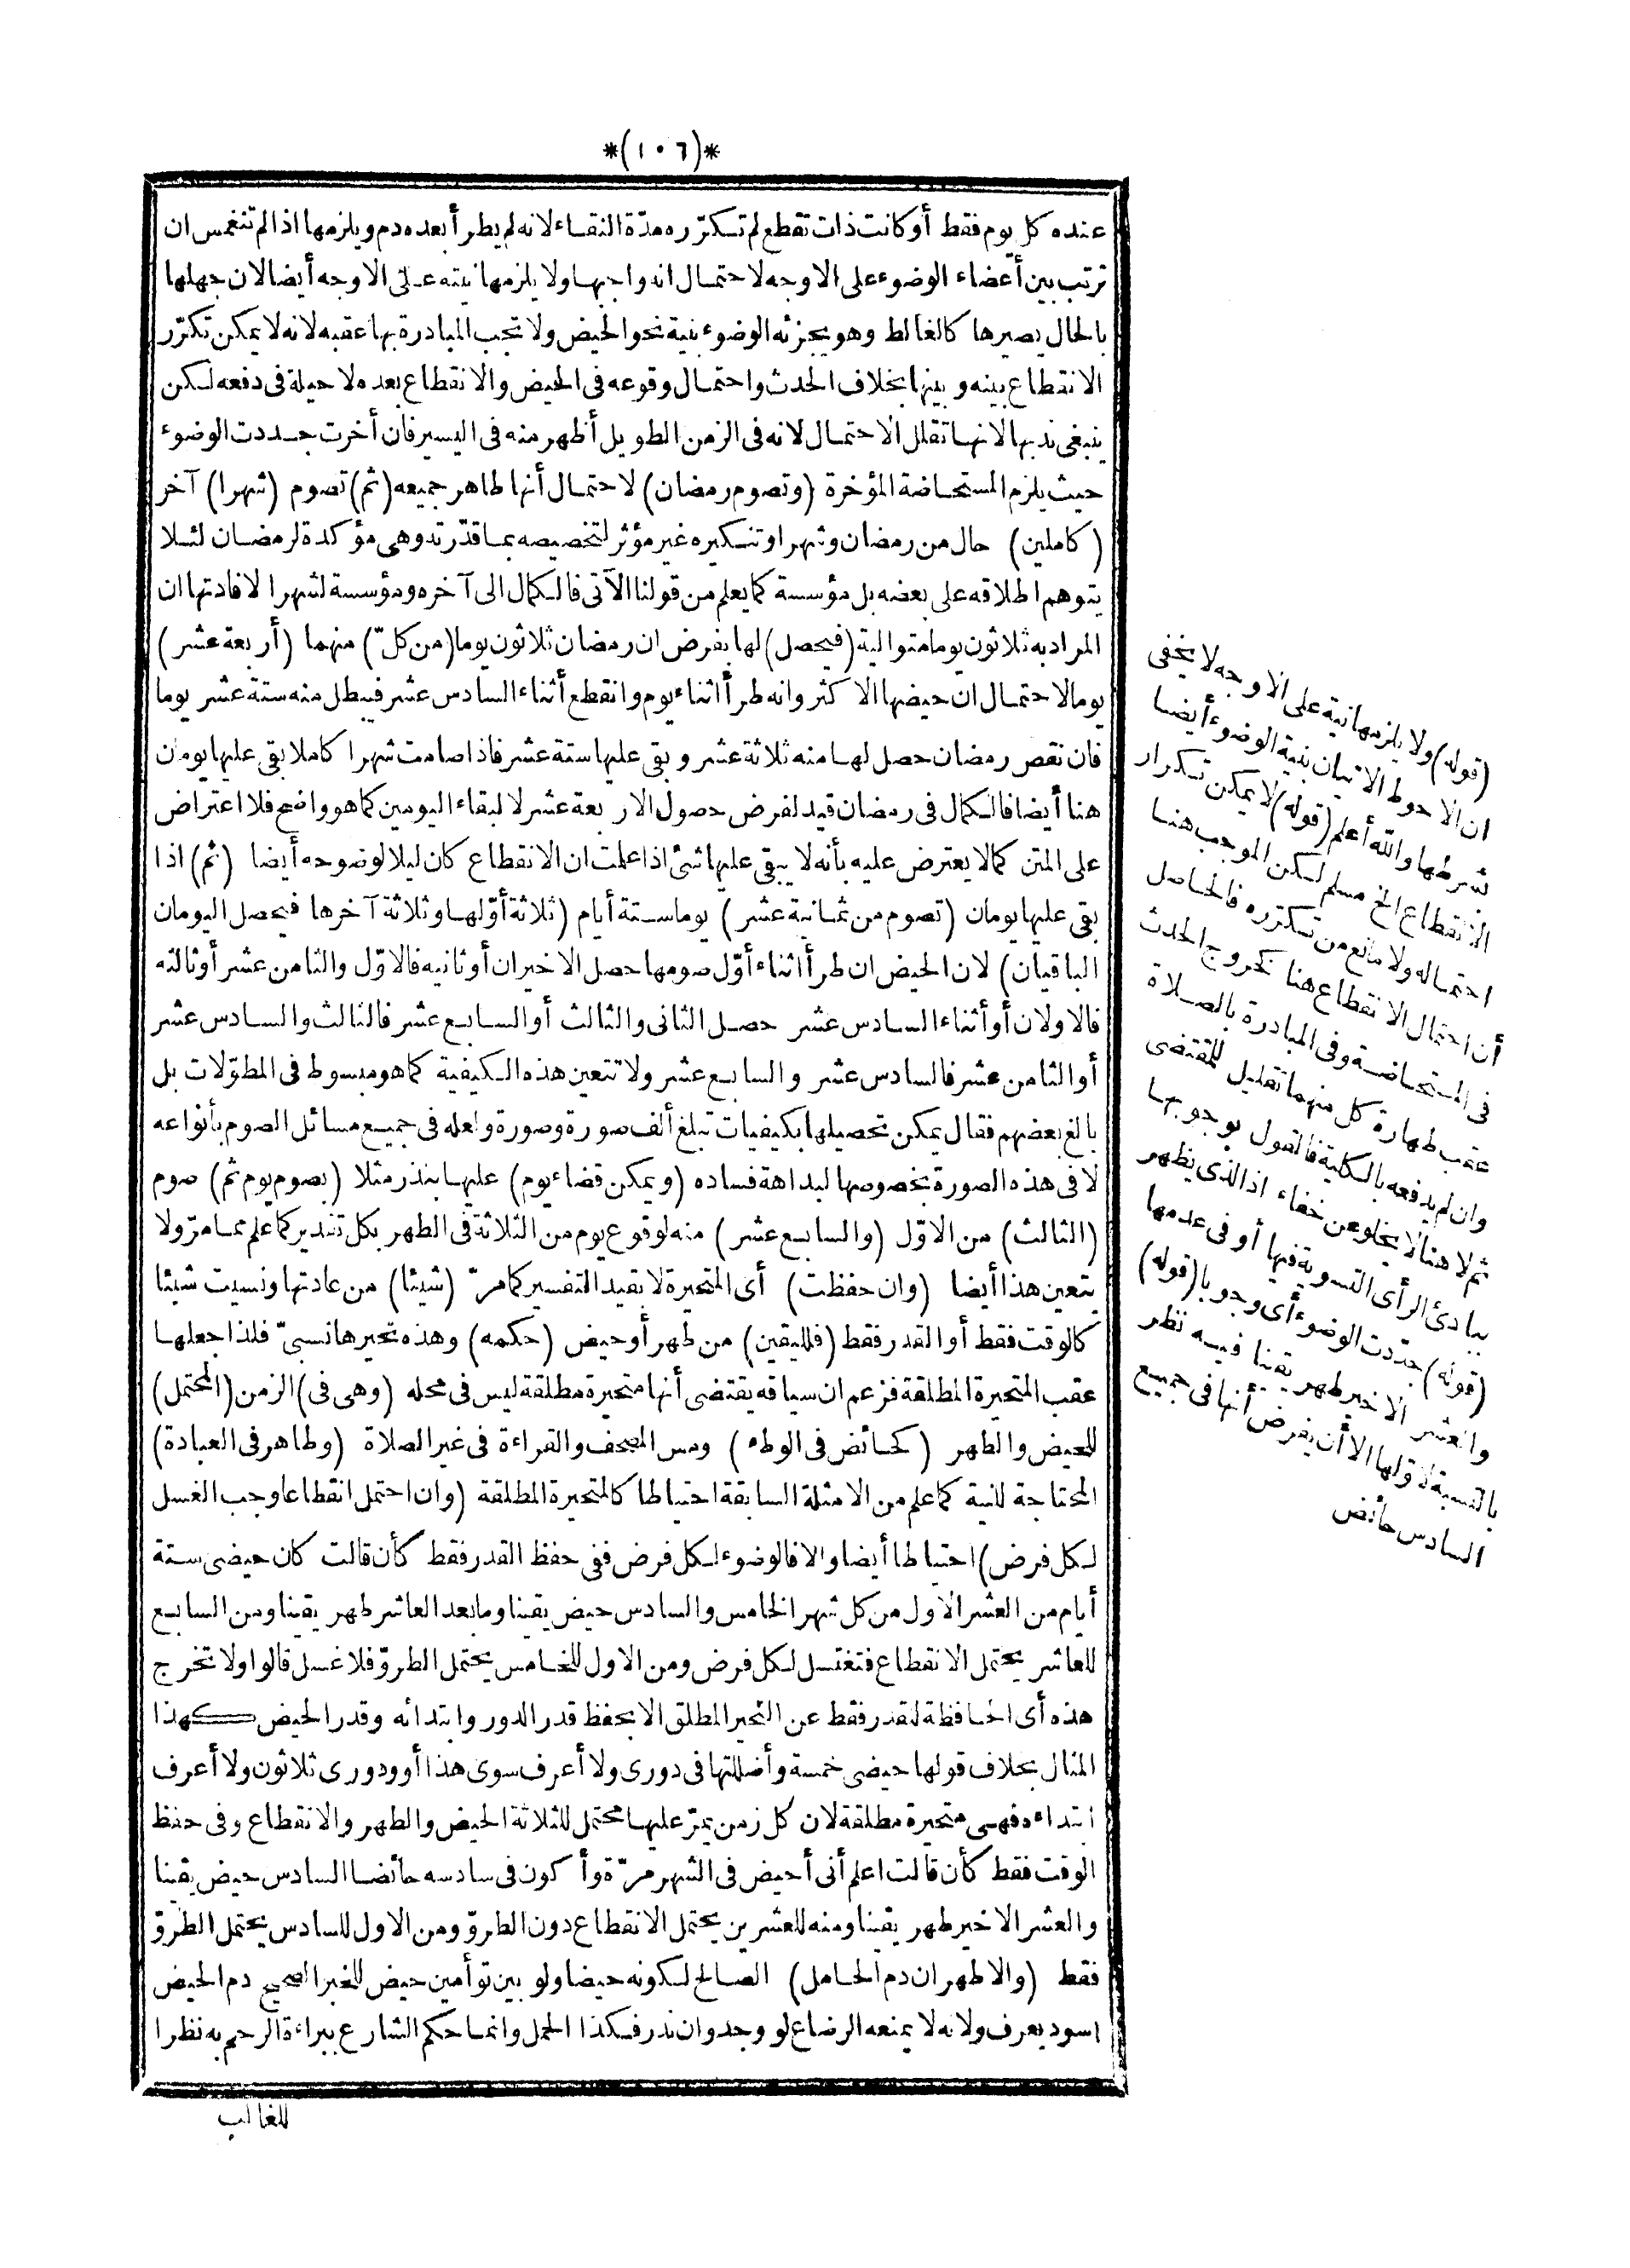 *(١٠٦)*
عنده كل يوم فقط أو كانت ذات تقطع لم تكرّره مدّة النقاء لانه لم يطرأ بعده دم ويلزمها اذا لم تنغمس ان
ترتب بين أعضاء الوضوء على الاوجه لاحتمال انه واجبها ولا يلزمها نيته على الاوجه أيضا لان جهلها
بالحال يصيرها كالغالط وهو يجزئه الوضوء بنية نحو الحيض ولا تجب المبادرة بها عقبه لانه لا يمكن تكرّر
الانقطاع بينه وبينها بخلاف الحدث واحتمال وقوعه فى الحيض والانقطاع بعده لا حيلة فى دفعه لكن
ينبغى ندبها لانها تقلل الاحتمال لانه فى الزمن الطويل أظهر منه فى اليسير فان أخرت جددت الوضوء
حيث يلزم المستحاضة المؤخرة (وتصوم رمضان) لاحتمال أنها طاهر جميعه (ثم) تصوم (شهرا) آخر
(كاملين) حال من رمضان وشهرا وتنكيره غير مؤثر لتخصيصه بما قدّرته وهى مؤكدة لرمضان لئلا
يتوهم اطلاقه على بعضه بل مؤسسة كما يعلم من قولنا الآتى فالكمال الى آخره ومؤسسة لشهرا لافادتها ان
المراد به ثلاثون يوما متوالية (فيحصل) لها بفرض ان رمضان ثلاثون يوما (من كلّ) منهما (أربعة عشر)
يوما لاحتمال ان حيضها الاكثر وانه طرأ أثناء يوم وانقطع أثناء السادس عشر فيبطل منه ستة عشر يوما
فان نقص رمضان حصل لها منه ثلاثة عشر وبقى عليها ستة عشر فاذا صامت شهرا كاملا بقى عليها يومان
هنا أيضا فالكمال فى رمضان قيد لفرض حصول الاربعة عشر لا لبقاء اليومين كما هو واضح فلا اعتراض
على المتن كما لا يعترض عليه بأنه لا يبقى عليها شئ اذا علمت ان الانقطاع كان ليلا لوضوحه أيضا (ثم) اذا
بقى عليها يومان (تصوم من ثمانية عشر) يوما ستة أيام (ثلاثة أوّلها وثلاثة آخرها فيحصل اليومان
الباقيان) لان الحيض ان طرأ أثناء أوّل صومها حصل الاخيران أو ثانيه فالاوّل والثامن عشر أو ثالثه
فالاولان أو أثناء السادس عشر حصل الثانى والثالث أو السابع عشر فالثالث والسادس عشر
أو الثامن عشر فالسادس عشر والسابع عشر ولا تتعين هذه الكيفية كما هو مبسوط فى المطوّلات بل
بالغ بعضهم فقال يمكن تحصيلها بكيفيات تبلغ ألف صورة وصورة ولعله فى جميع مسائل الصوم بأنواعه
لا فى هذه الصورة بخصوصها لبداهة فساده (ويمكن قضاء يوم) عليها بنذر مثلا (بصوم يوم ثم) صوم
(الثالث) من الاوّل (والسابع عشر) منه لوقوع يوم من الثلاثة فى الطهر بكل تقدير كما علم مما مرّ ولا
يتعين هذا أيضا (وان حفظت) أى المتحيرة لا بقيد التفسير كما مرّ (شيئا) من عادتها ونسيت شيئا
كالوقت فقط أو القدر فقط (فلليقين) من طهر أو حيض (حكمه) وهذه تحيرها نسبىّ فلذا جعلها
عقب المتحيرة المطلقة فزعم ان سياقه يقتضى أنها متحيرة مطلقة ليس فى محله (وهى فى) الزمن (المحتمل)
للحيض والطهر (كحائض فى الوطء) ومس المصحف والقراءة فى غير الصلاة (وطاهر فى العبادة)
المحتاجة للنية كما علم من الامثلة السابقة احتياطا كالمتحيرة المطلقة (وان احتمل انقطاعا وجب الغسل
لكل فرض) احتياطا أيضا والا فالوضوء لكل فرض ففى حفظ القدر فقط كأن قالت كان حيضى ستة
أيام من العشر الاول من كل شهر الخامس والسادس حيض يقينا وما بعد العاشر طهر يقينا ومن السابع
للعاشر يحتمل الانقطاع فتغتسل لكل فرض ومن الاول للخامس يحتمل الطروّ فلا غسل قالوا ولا تخرج
هذه أى الحافظة للقدر فقط عن التحير المطلق الا بحفظ قدر الدور وابتدائه وقدر الحيض كهذا
المثال بخلاف قولها حيضى خمسة وأضللتها فى دورى ولا أعرف سوى هذا أو ودورى ثلاثون ولا أعرف
ابتداءه فهى متحيرة مطلقة لان كل زمن يمرّ عليها محتمل للثلاثة الحيض والطهر والانقطاع وفى حفظ
الوقت فقط كأن قالت اعلم أنى أحيض فى الشهر مرّة وأكون فى سادسه حائضا السادس حيض يقينا
والعشر الاخير طهر يقينا ومنه للعشرين يحتمل الانقطاع دون الطروّ ومن الاول للسادس يحتمل الطروّ
فقط (والاظهر ان دم الحامل) الصالح لكونه حيضا ولو بين توأمين حيض للخبر الصحيح دم الحيض
اسود يعرف ولانه لا يمنعه الرضاع لو وجد وان ندر فكذا الحمل وانما حكم الشارع ببراءة الرحم به نظرا
للغالب
(قوله) ولا يلزمها نية على الاوجه لا يخفى
ان الاحوط الاتيان بنية الوضوء أيضا
بشرطها والله أعلم (قوله) لا يمكن تكرار
الانقطاع الخ مسلم لكن الموجب هنا
احتماله ولا مانع من تكرره فالحاصل
أن احتمال الانقطاع هنا كخروج الحدث
فى المستحاضة وفى المبادرة بالصلاة
عقب طهارة كل منهما تقليل للمقتضى
وان لم يدفعه بالكلية فالقول بوجوبها
ثم لا هنا لا يخلو عن خفاء اذ الذى يظهر
ببادئ الرأى التسوية فيها أو فى عدمها
(قوله) جدّدت الوضوء أى وجوبا (قوله)
والعشر الاخير طهر يقينا فيه نظر
بالنسبة لاوّلها الا أن يفرض أنها فى جميع
السادس حائض